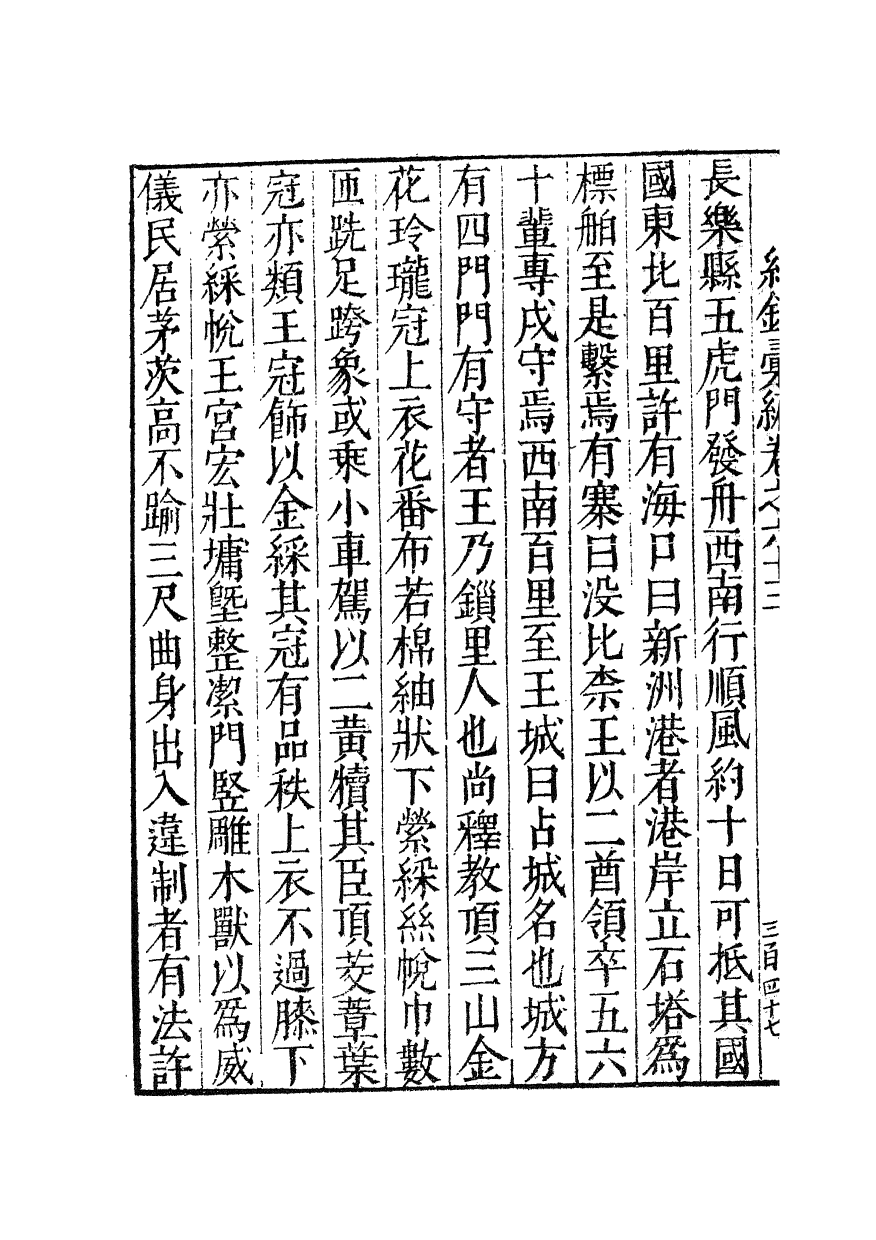 紀錄彙編卷之六十三
三百四十七
長樂縣五虎門發舟西南行順風約十日可抵其國
國東北百里許有海口曰新洲港者港岸立石塔爲
標舶至是繫焉有寨曰没比柰王以二酋領卒五六
十輩專戍守焉西南百里至王城曰占城名也城方
有四門門有守者王乃鎖里人也尚釋教頂三山金
花玲瓏冠上衣花番布若棉紬狀下縈綵絲帨巾數
匝跣足跨象或乘小車駕以二黄犢其臣頂茭葦葉
冠亦類王冠飾以金綵其冠有品秩上衣不過膝下
亦縈綵帨王宮宏壯墉墍整潔門竪雕木獸以爲威
儀民居茅茨高不踰三尺曲身出入違制者有法許